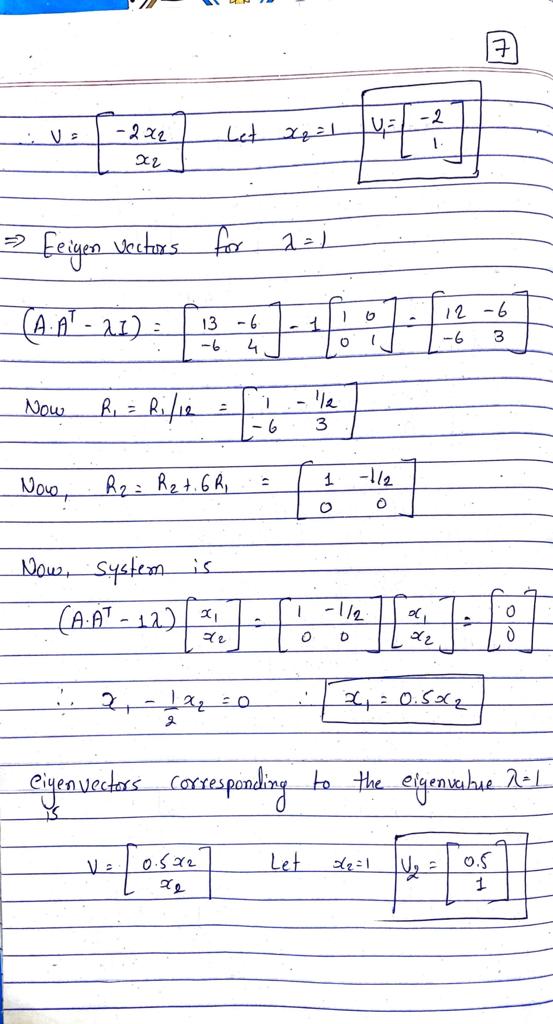 7
∴ V = [ -2x₂ ; x₂ ] Let x₂ = 1 V₁ = [ -2 ; 1 ]
⇒ Eeigen vectors for λ = 1
(A.Aᵀ - λI) = [ 13 -6 ; -6 4 ] - 1 [ 1 0 ; 0 1 ] = [ 12 -6 ; -6 3 ]
Now R₁ = R₁/12 = [ 1 -1/2 ; -6 3 ]
Now, R₂ = R₂ + 6R₁ = [ 1 -1/2 ; 0 0 ]
Now, system is
(A.Aᵀ - 1λ) [ x₁ ; x₂ ] = [ 1 -1/2 ; 0 0 ] [ x₁ ; x₂ ] = [ 0 ; 0 ]
∴ x₁ - 1/2 x₂ = 0 ∴ x₁ = 0.5x₂
eigenvectors corresponding to the eigenvalue λ=1
is
V = [ 0.5x₂ ; x₂ ] Let x₂=1 V₂ = [ 0.5 ; 1 ]